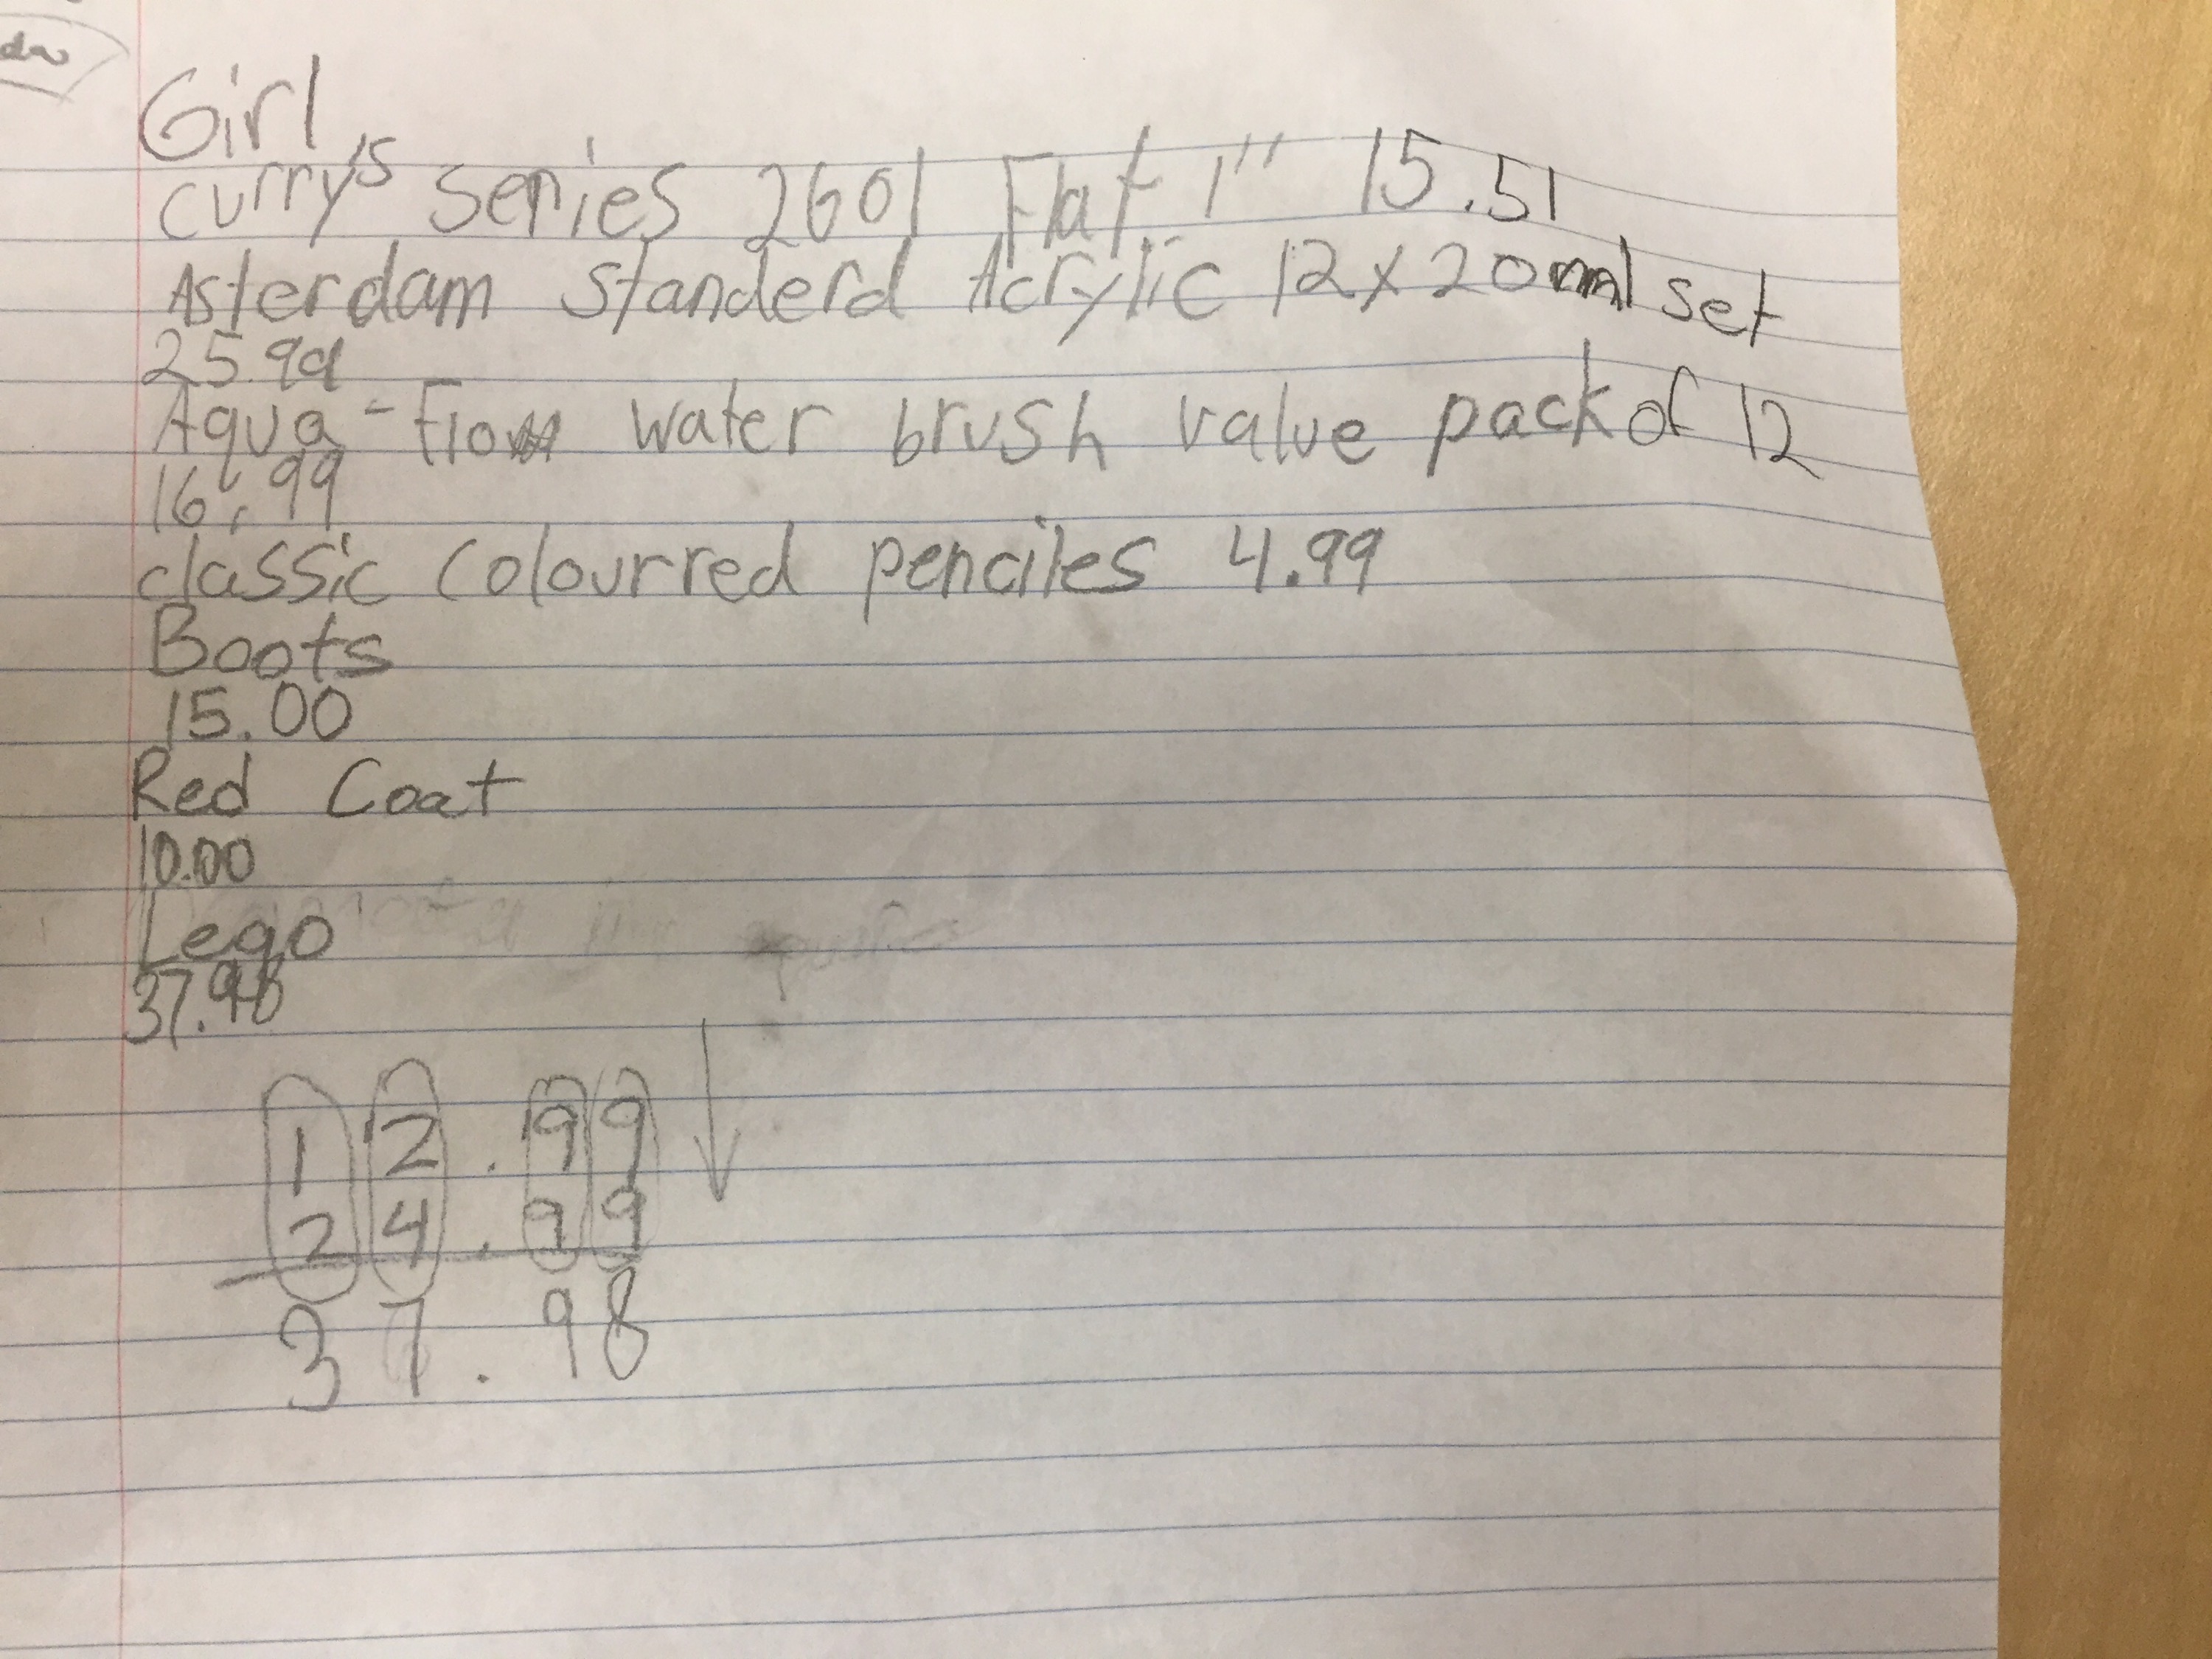 Girl
curry's series 2601 Flat 1" 15.51
Asterdam standerd Acrylic 12x20ml set
25.99
Aqua-Flow water brush value pack of 12
16.99
classic colourred penciles 4.99
Boots
15.00
Red Coat
10.00
Lego
37.98
12.99
24.99
37.98